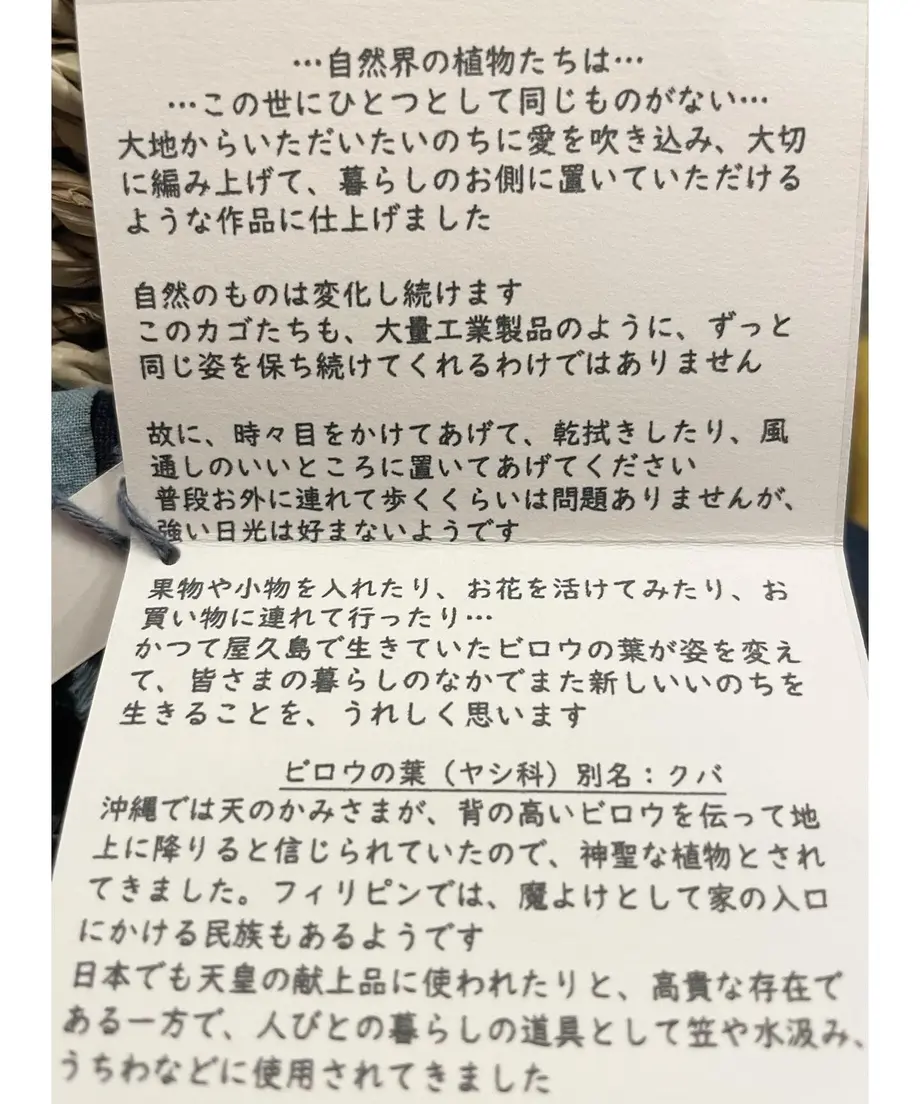 …自然界の植物たちは…
…この世にひとつとして同じものがない…
大地からいただいたいのちに愛を吹き込み、大切
に編み上げて、暮らしのお側に置いていただける
ような作品に仕上げました
自然のものは変化し続けます
このカゴたちも、大量工業製品のように、ずっと
同じ姿を保ち続けてくれるわけではありません
故に、時々目をかけてあげて、乾拭きしたり、風
通しのいいところに置いてあげてください
普段お外に連れて歩くくらいは問題ありませんが、
強い日光は好まないようです
果物や小物を入れたり、お花を活けてみたり、お
買い物に連れて行ったり…
かつて屋久島で生きていたビロウの葉が姿を変え
て、皆さまの暮らしのなかでまた新しいいのちを
生きることを、うれしく思います
ビロウの葉（ヤシ科）別名：クバ
沖縄では天のかみさまが、背の高いビロウを伝って地
上に降りると信じられていたので、神聖な植物とされ
てきました。フィリピンでは、魔よけとして家の入口
にかける民族もあるようです
日本でも天皇の献上品に使われたりと、高貴な存在で
ある一方で、人びとの暮らしの道具として笠や水汲み、
うちわなどに使用されてきました